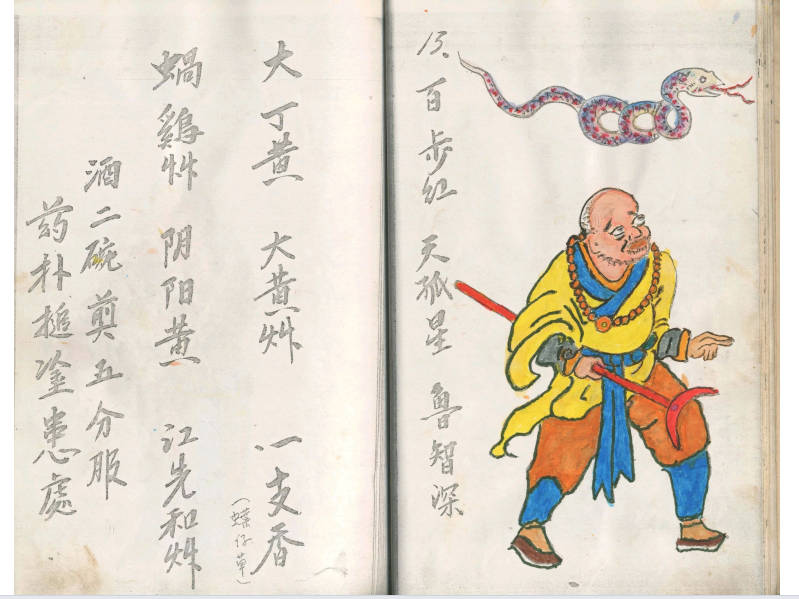 13、百步红 天孤星 鲁智深
大丁黄 大黄艸 一支香
(仔草)
蝸鷄艸 阴阳黄 江先和艸
酒二碗煎五分服
药朴搥塗患處